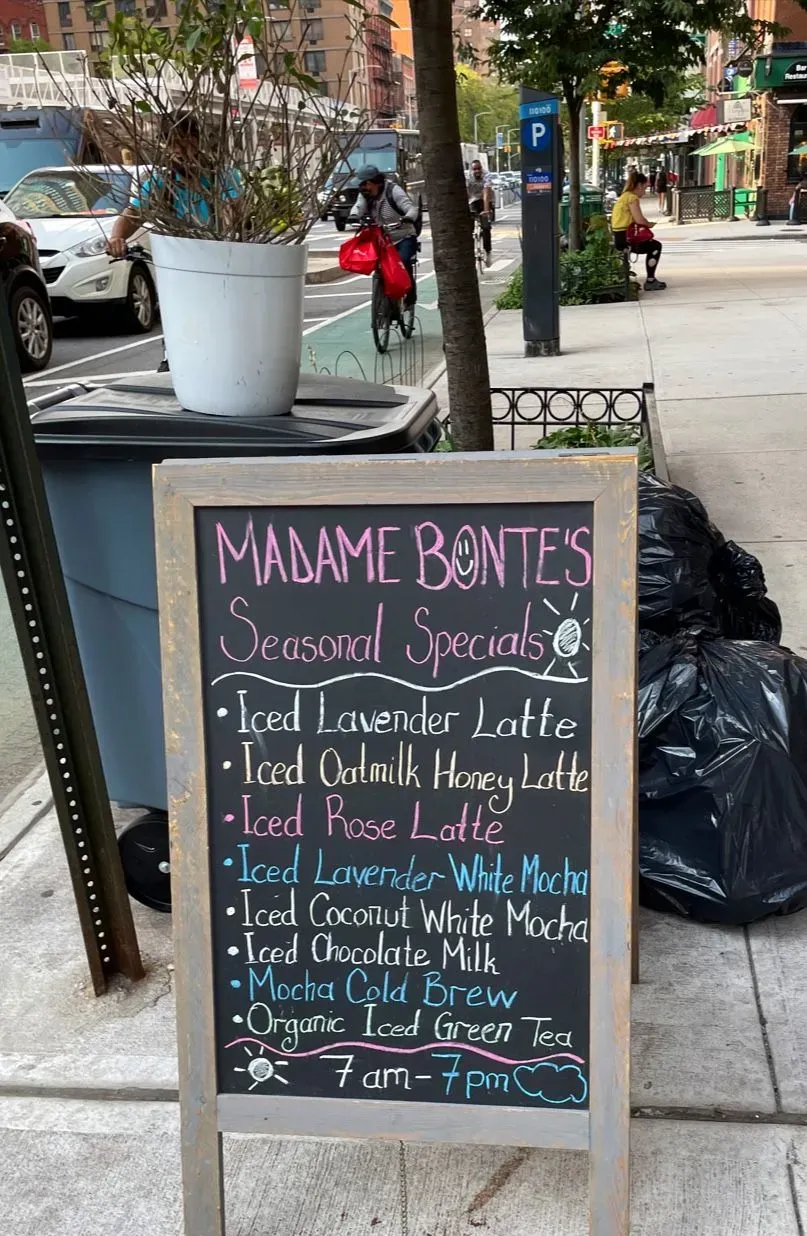 110100
P
110100
Bar
Restau
MADAME BONTE'S
Seasonal Specials
• Iced Lavender Latte
• Iced Oatmilk Honey Latte
• Iced Rose Latte
• Iced Lavender White Mocha
• Iced Coconut White Mocha
• Iced Chocolate Milk
• Mocha Cold Brew
• Organic Iced Green Tea
7am-7pm